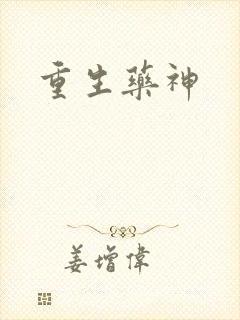 重生藥神
姜增偉